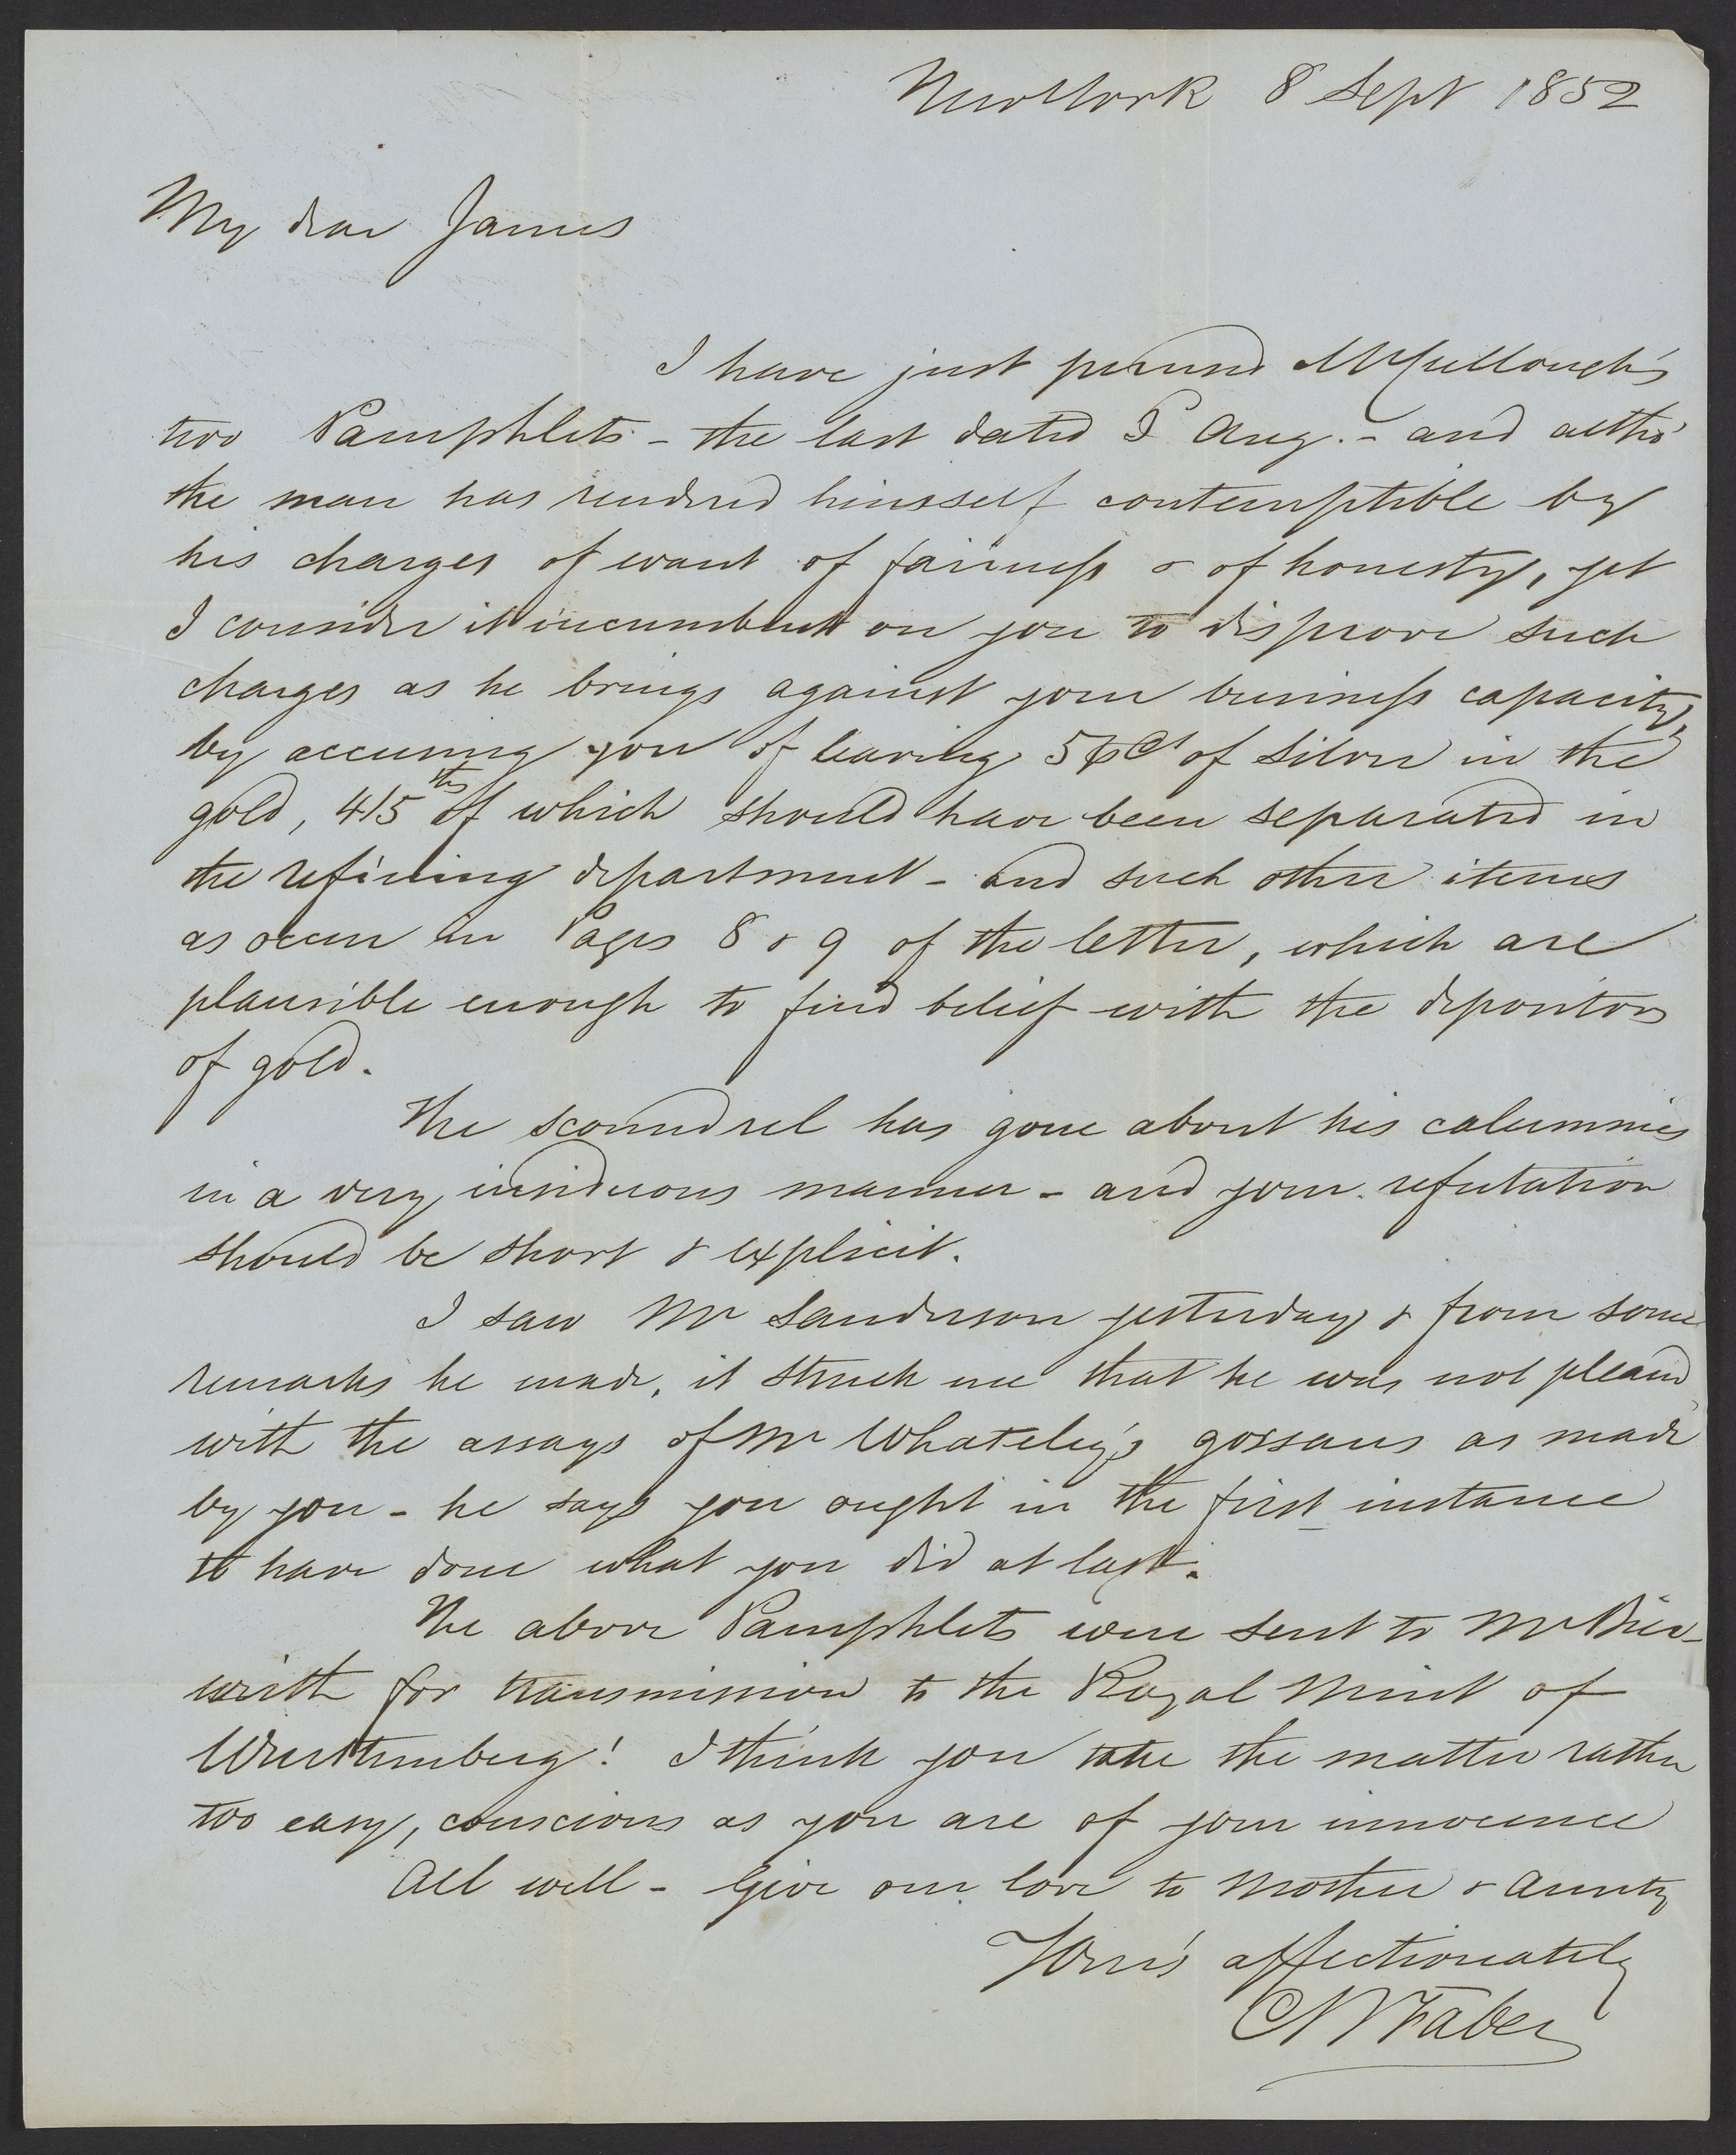 New York 8 Sept 1852
My dear James
I have just perused McCullough's
two Pamphlets - the last dated Aug. - and altho'
the man has rendered himself contemptible by
his charges of want of fairness & of honesty, yet
I consider it incumbent on you to disprove such
charges as he brings against your business capacity,
by accusing you of leaving 5 pCt of silver in the
gold, 4/5ths of which should have been separated in
the refining department - and such other items
as occur in Pages 8 & 9 of the letter, which are
plausible enough to find belief with the depositors
of gold.
The scoundrel has gone about his calumnies
in a very insiduous manner - and your refutation
should be short & explicit.
I saw Mr Sanderson yesterday & from some
remarks he made, it struck me that he was not pleased
with the assays of Mr Whateley's gossans as made
by you - he says you ought in the first instance
to have done what you did at last.
The above Pamphlets were sent to Mr Bier-
wirth for transmission to the Royal Mint of
Wurttemberg! I think you take the matter rather
too easy, conscious as you are of your innocence
All well - Give our love to Mother & Aunty
Your's affectionately
Faber